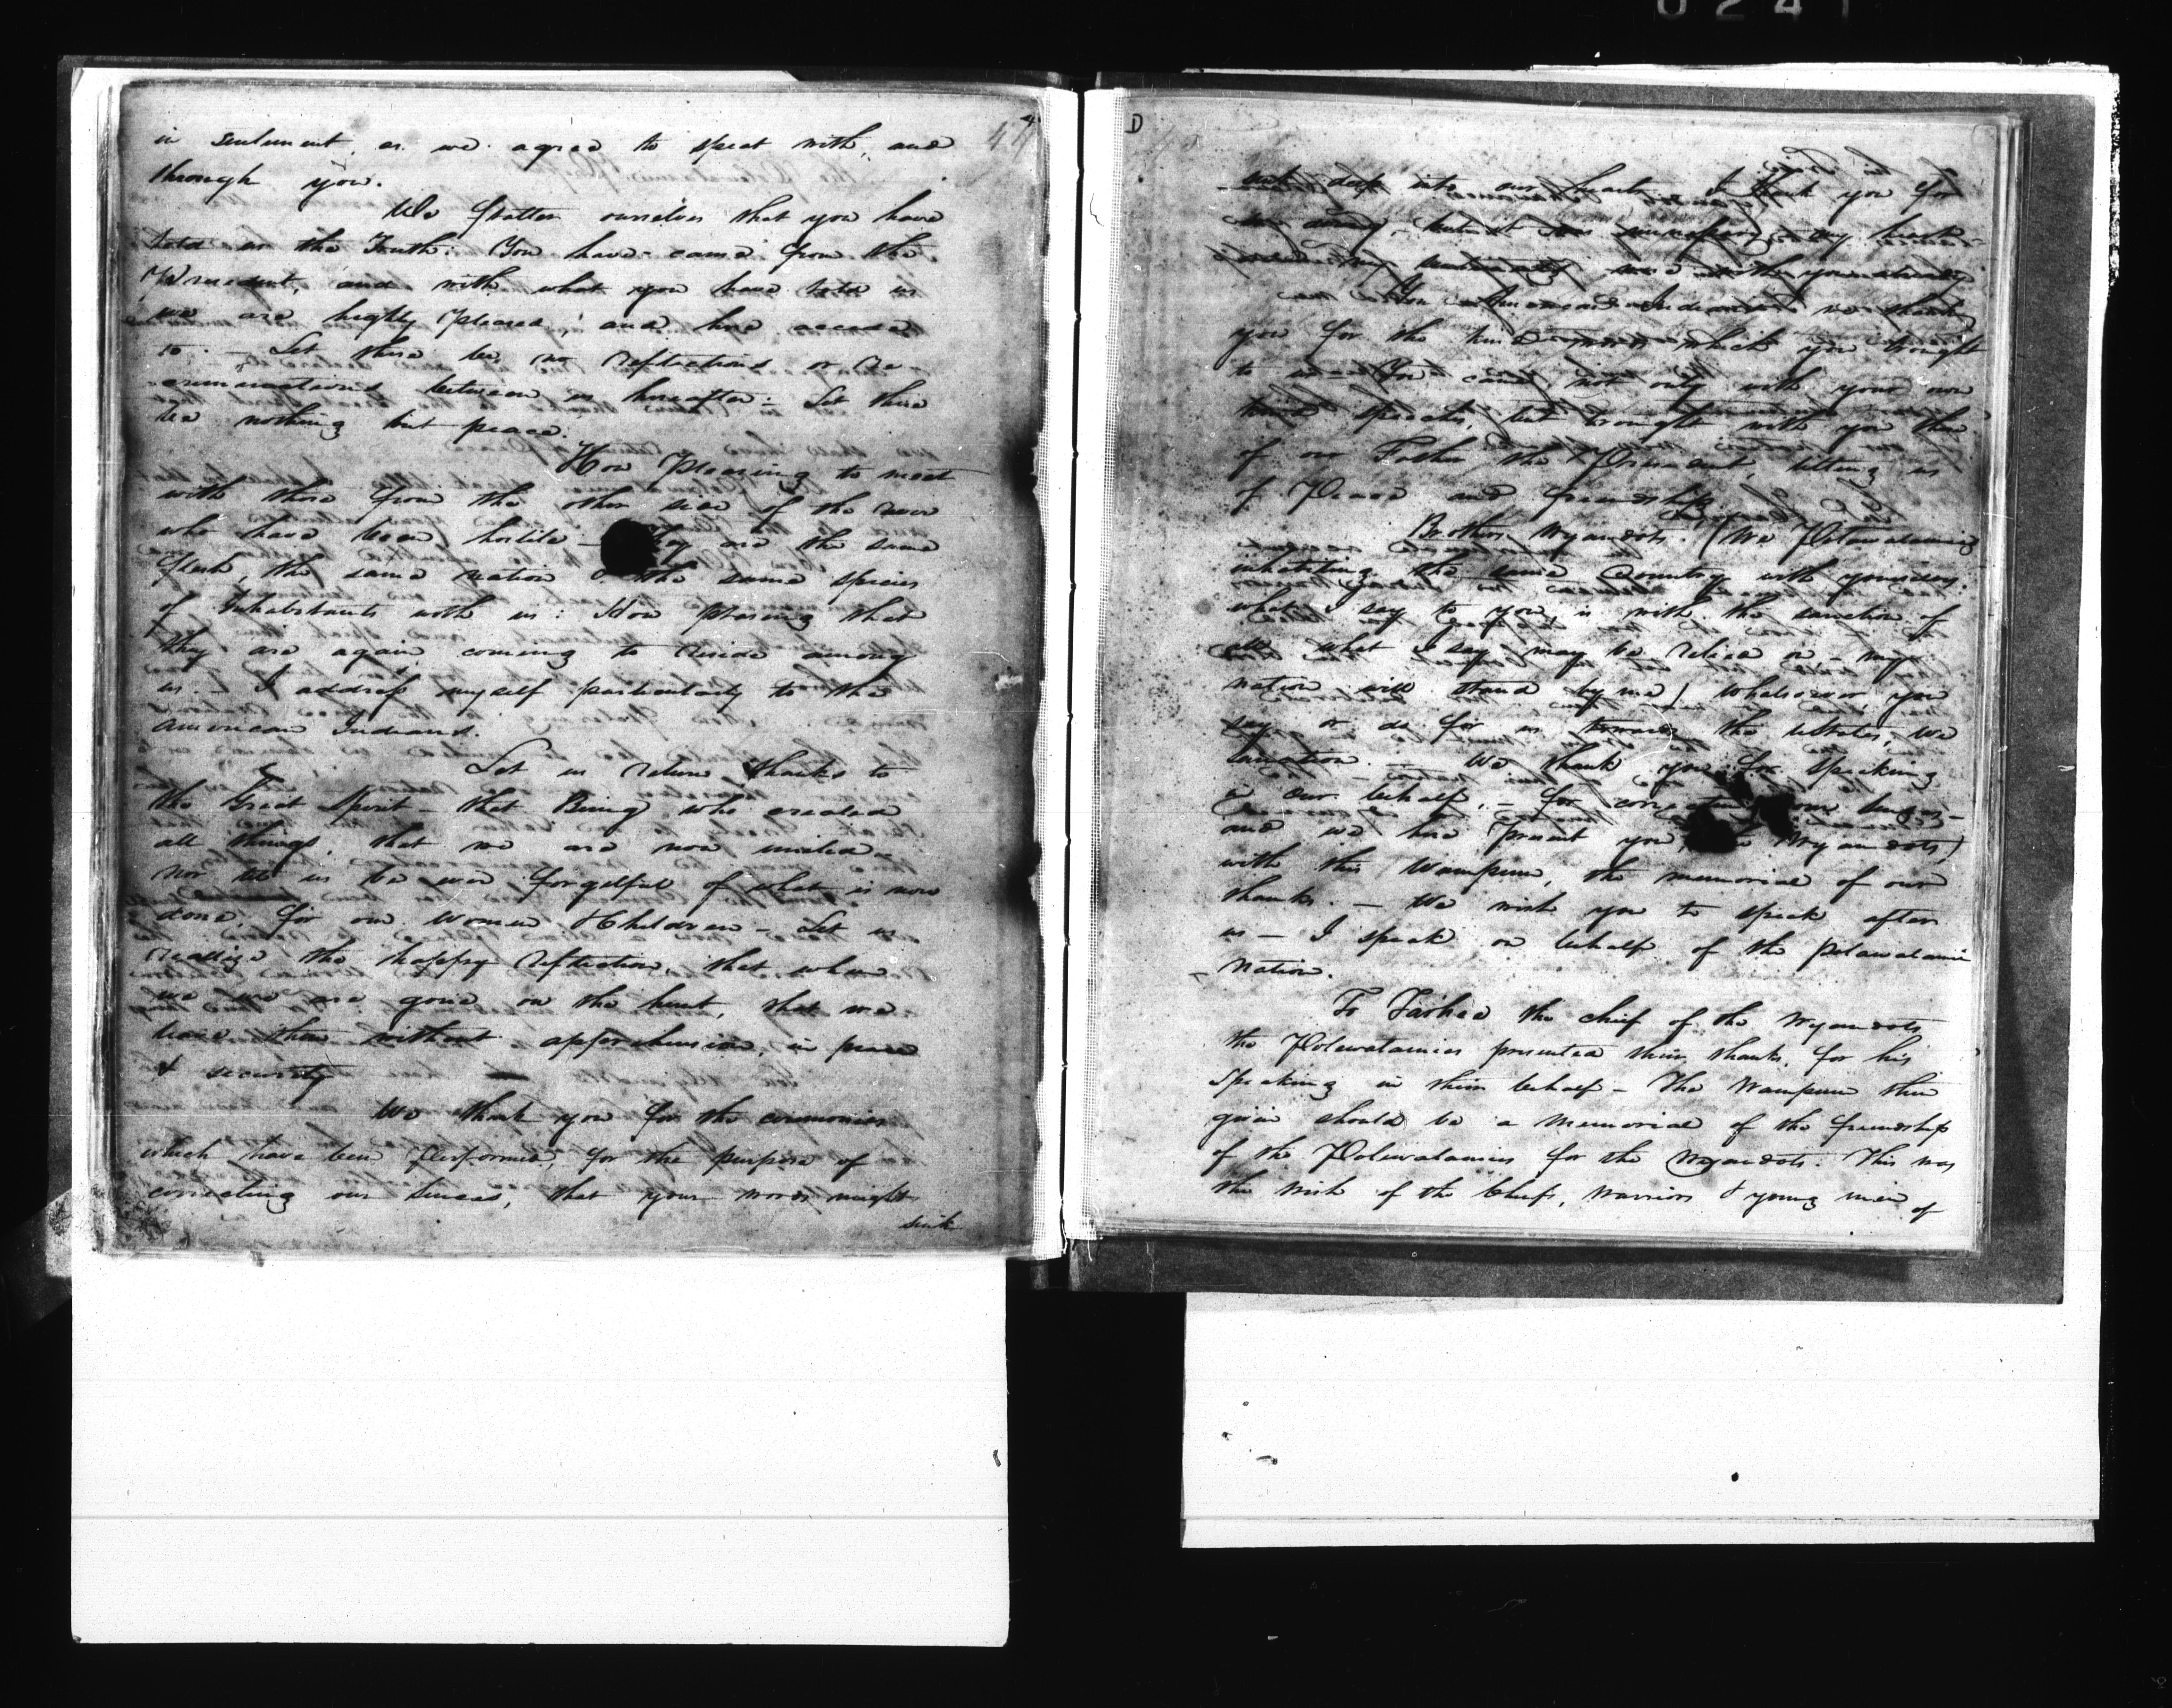 0241
47
in sentiment, as we agree to speak with, and
through you.
We flatter ourselves that you have
told us the Truth: You have come from the
President, and with what you have told us
we are highly pleased, and here accede
to. — Let there be no reflections or re
criminations between us hereafter: Let there
be nothing but peace.
How pleasing to meet
with those from the other side of the river
who have been hostile — are the same
flesh, the same nation & the same species
of Inhabitants with us: How pleasing that
they are again coming to reside among
us. — I address myself particularly to the
American Indians.
Let us return thanks to
the Great Spirit — that Being who created
all things, that we are now united —
nor let us be ever forgetful of what is now
done, for our women & Children — Let us
realize the happy reflection, that when
we are gone on the hunt, that we
leave them without apprehension, in peace
& security
We thank you for the ceremonies
which have been performed, for the purpose of
correcting our senses, that your words might
sink
D
sink deep into our hearts. I thank you for
my heart
you already
American Indians we thank
you for the kind words which you brought
to us — You came not only with your own
kind speeches, but brought with you those
of our Father the President, telling us
of Peace and friendship.
Brothers Wyandots. (We Potawatamies
inhabiting the same Country with yourselves:
what I say to you, is with the sanction of
all what I say may be relied on — my
nation will stand by me) whatsoever you
say or do for us towards the States, we
sanction. — We thank you for speaking
in our behalf, — for our
and we here present you Wyandots)
with this Wampum, the memorial of our
thanks. — We wish you to speak after
us — I speak on behalf of the Potawatamie
Nation.
To Tarhee the chief of the Wyandots
the Potewatamies presented their thanks, for his
speaking in their behalf — The Wampum then
given should be a memorial of the friendship
of the Potewatamies for the Wyandots. This was
the wish of the Chiefs, warriors & young men
of